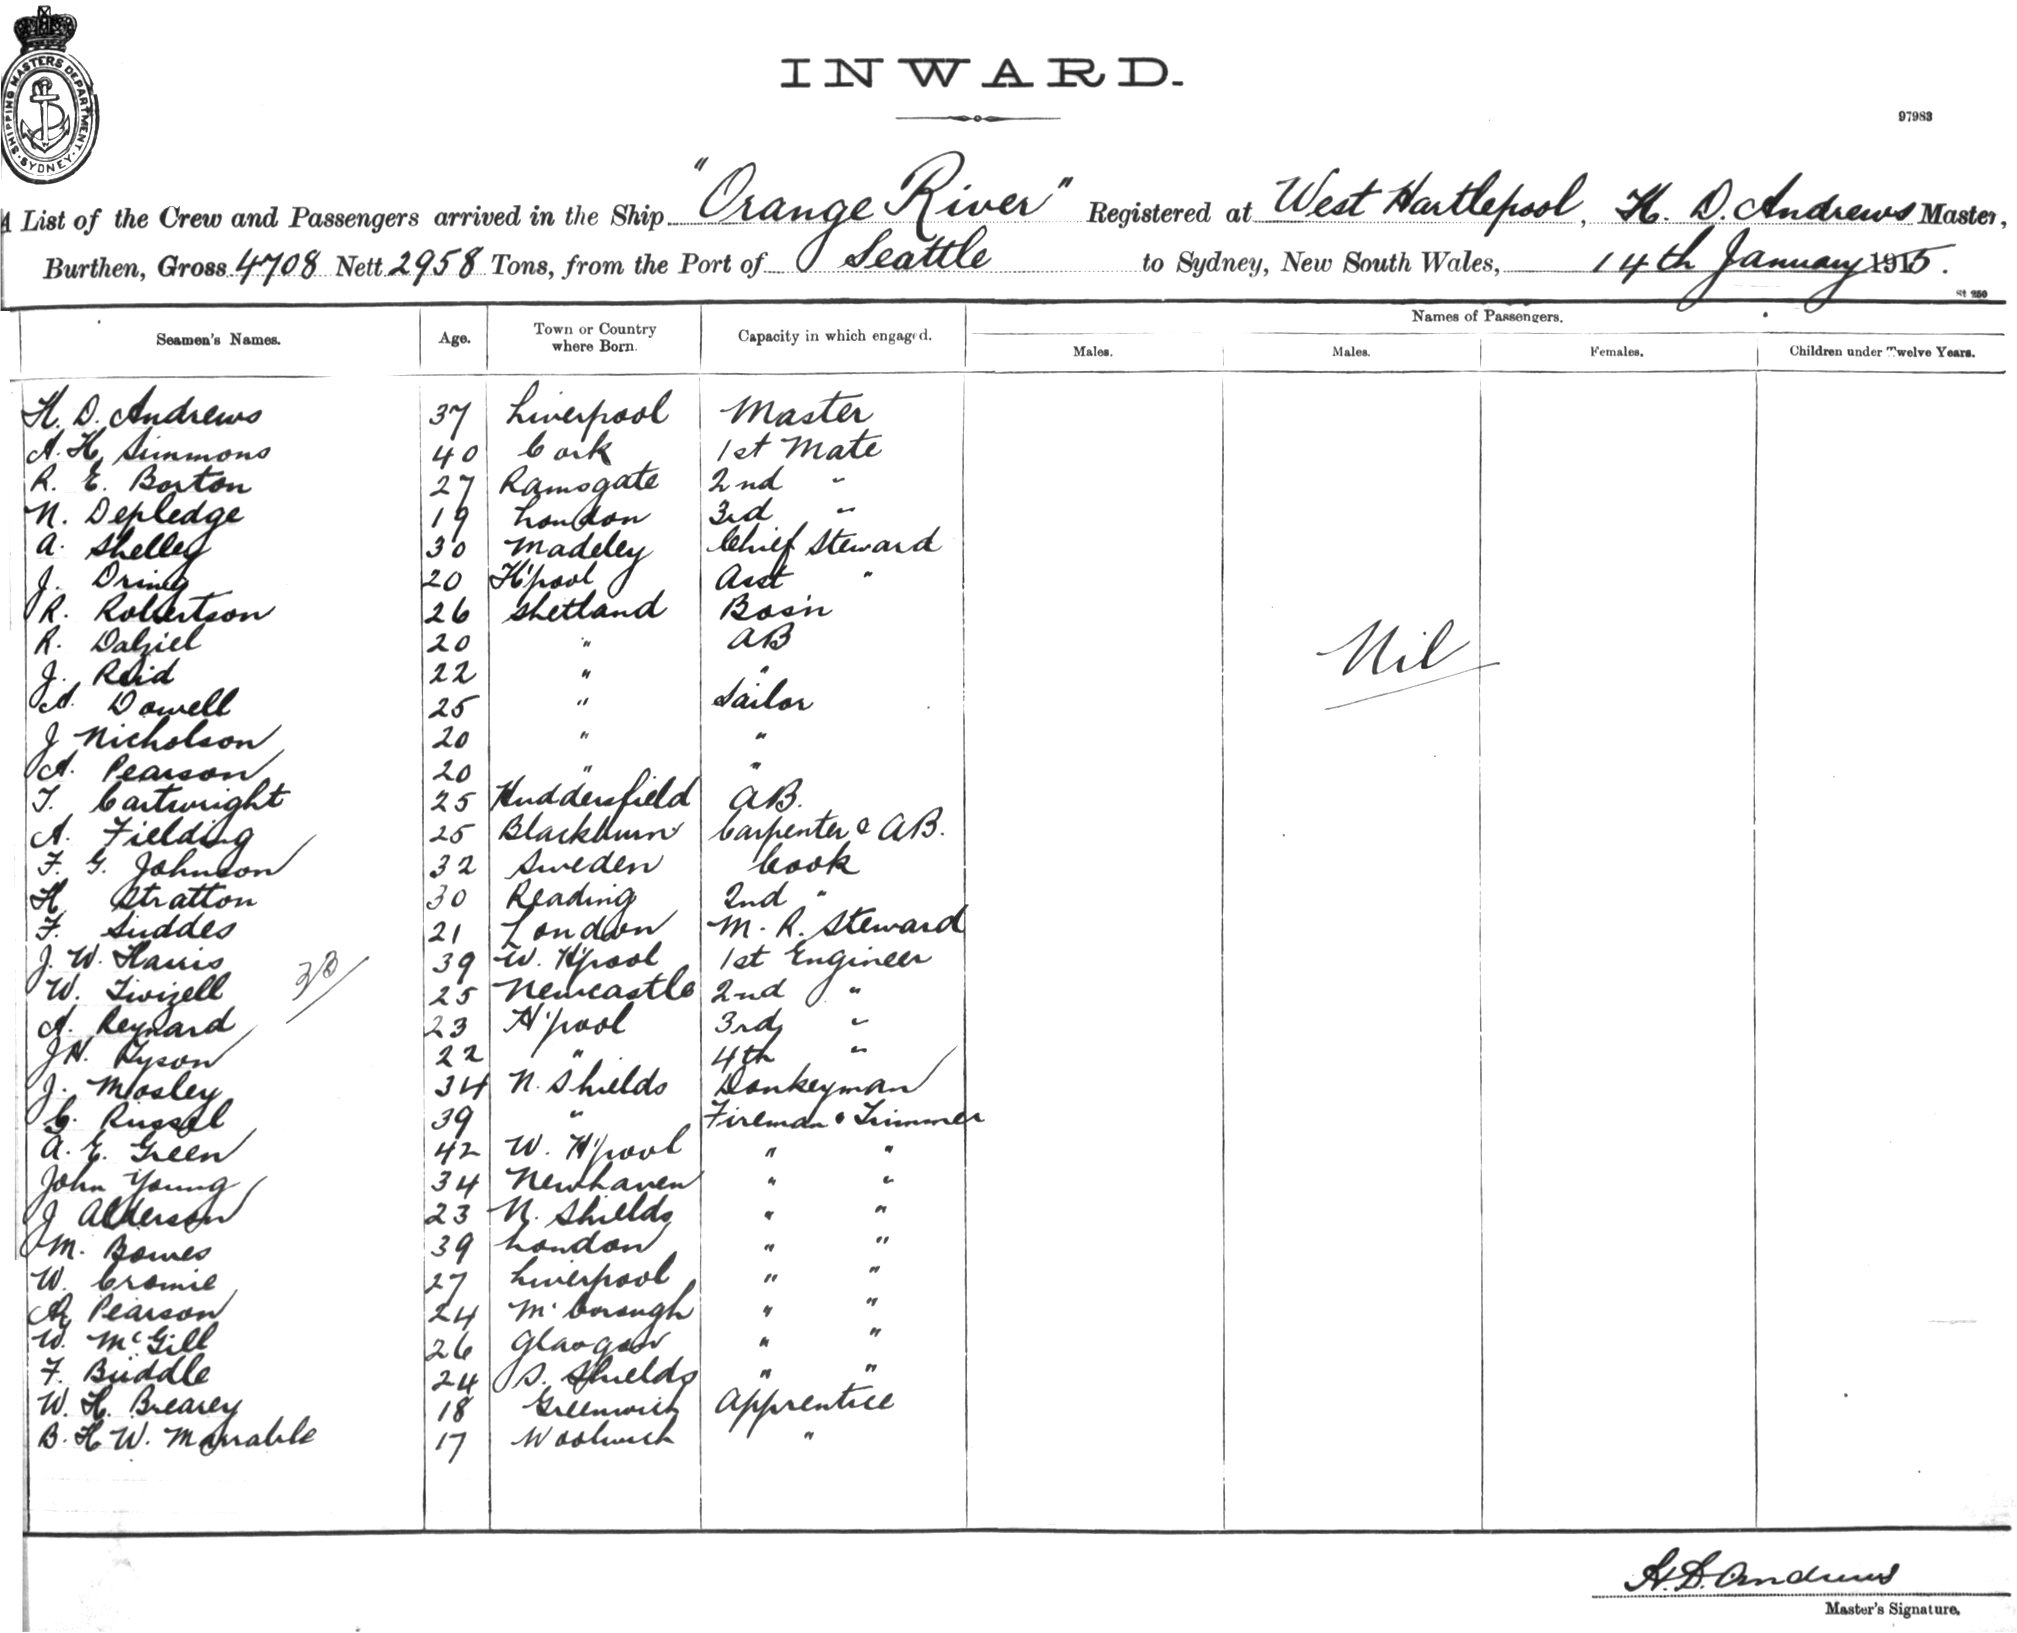 SHIPPING MASTERS DEPARTMENT. SYDNEY.
INWARD.
97983
A List of the Crew and Passengers arrived in the Ship "Orange River" Registered at West Hartlepool, H. D. Andrews Master,
Burthen, Gross 4708 Nett 2958 Tons, from the Port of Seattle to Sydney, New South Wales, 14th January 1915.
St 250
Seamen's Names. Age. Town or Country where Born. Capacity in which engaged. Names of Passengers.
Males. Males. Females. Children under Twelve Years.
H. D. Andrews 37 Liverpool Master
A. H. Simmons 40 Cork 1st Mate
R. E. Borton 27 Ramsgate 2nd "
N. Depledge 19 London 3rd "
A. Shelley 30 Madeley Chief Steward
J. Dring 20 H'pool Asst "
R. Robertson 26 Shetland Bos'n
R. Dalziel 20 " AB
J. Reid 22 " "
A. Dowell 25 " Sailor
J Nicholson 20 " "
A. Pearson 20 " "
T. Cartwright 25 Huddersfield AB.
A. Fielding 25 Blackburn Carpenter & AB.
F. G. Johnson 32 Sweden Cook
H Stratton 30 Reading 2nd "
F. Suddes 21 London M. R. Steward
J. W. Harris 39 W. H'pool 1st Engineer
W. Twizell 25 Newcastle 2nd "
A. Reynard 23 H'pool 3rd "
J H. Tyson 22 " 4th "
J. Mosley 34 N. Shields Donkeyman
C. Russel 39 " Fireman & Trimmer
A. E. Green 42 W. H'pool " "
John Young 34 Newhaven " "
J Alderson 23 N. Shields " "
M. Bowes 39 London " "
W. Cromie 27 Liverpool " "
A. Pearson 24 M'borough " "
W. McGill 26 Glasgow " "
F. Buddle 24 S. Shields " "
W. H. Brearey 18 Greenwich Apprentice
B. H W. Marrable 17 Woolwich "
Nil
33
H. D. Andrews
Master's Signature.